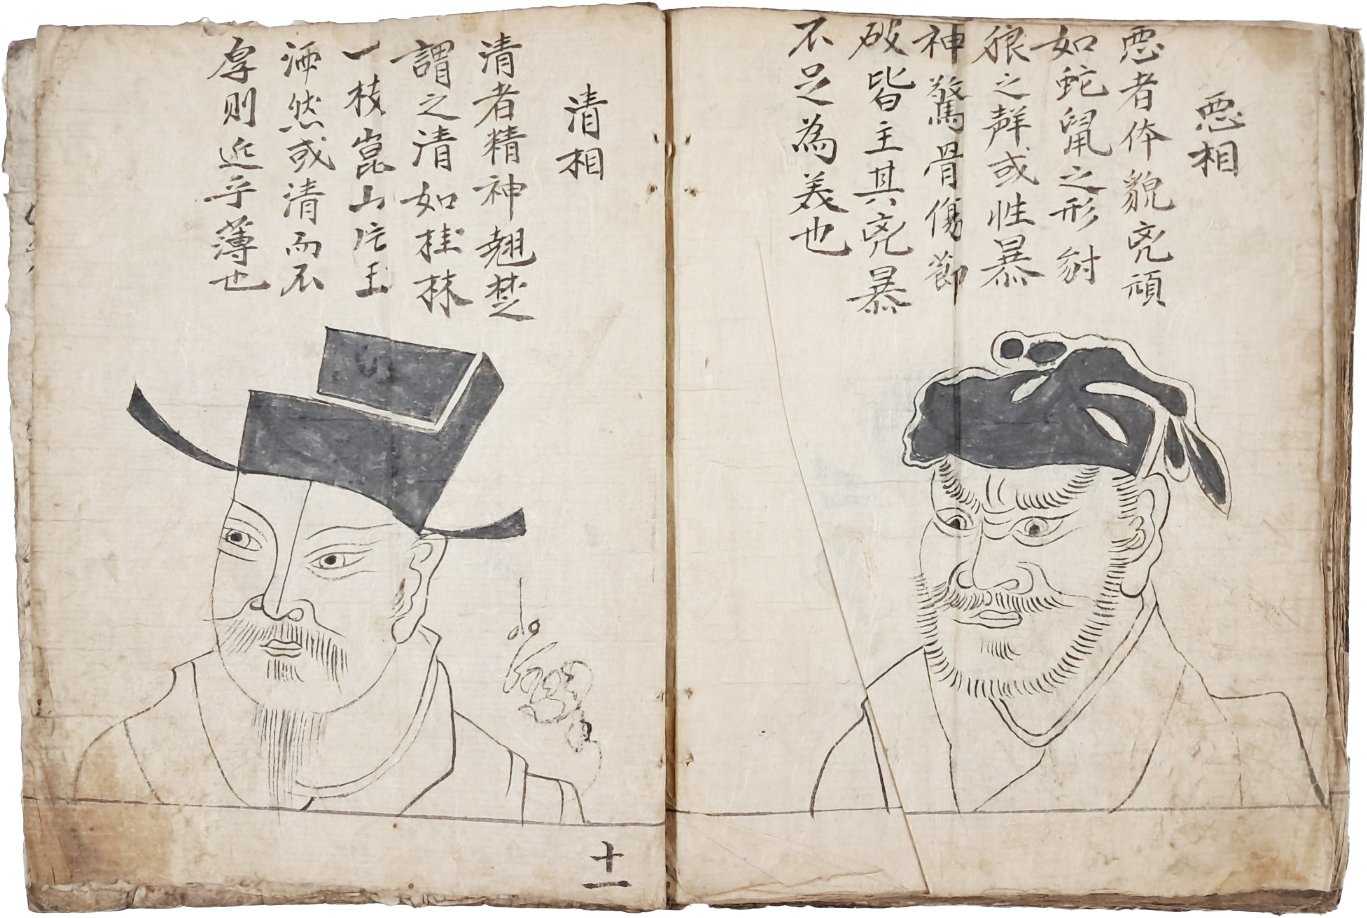 惡相
惡者体貌兇頑
如蛇鼠之形豺
狼之聲或性暴
神驚骨傷節
破皆主其兇暴
不足為美也
清相
清者精神翹楚
謂之清如桂林
一枝崑山片玉
洒然或清而不
厚則近乎薄也
十一